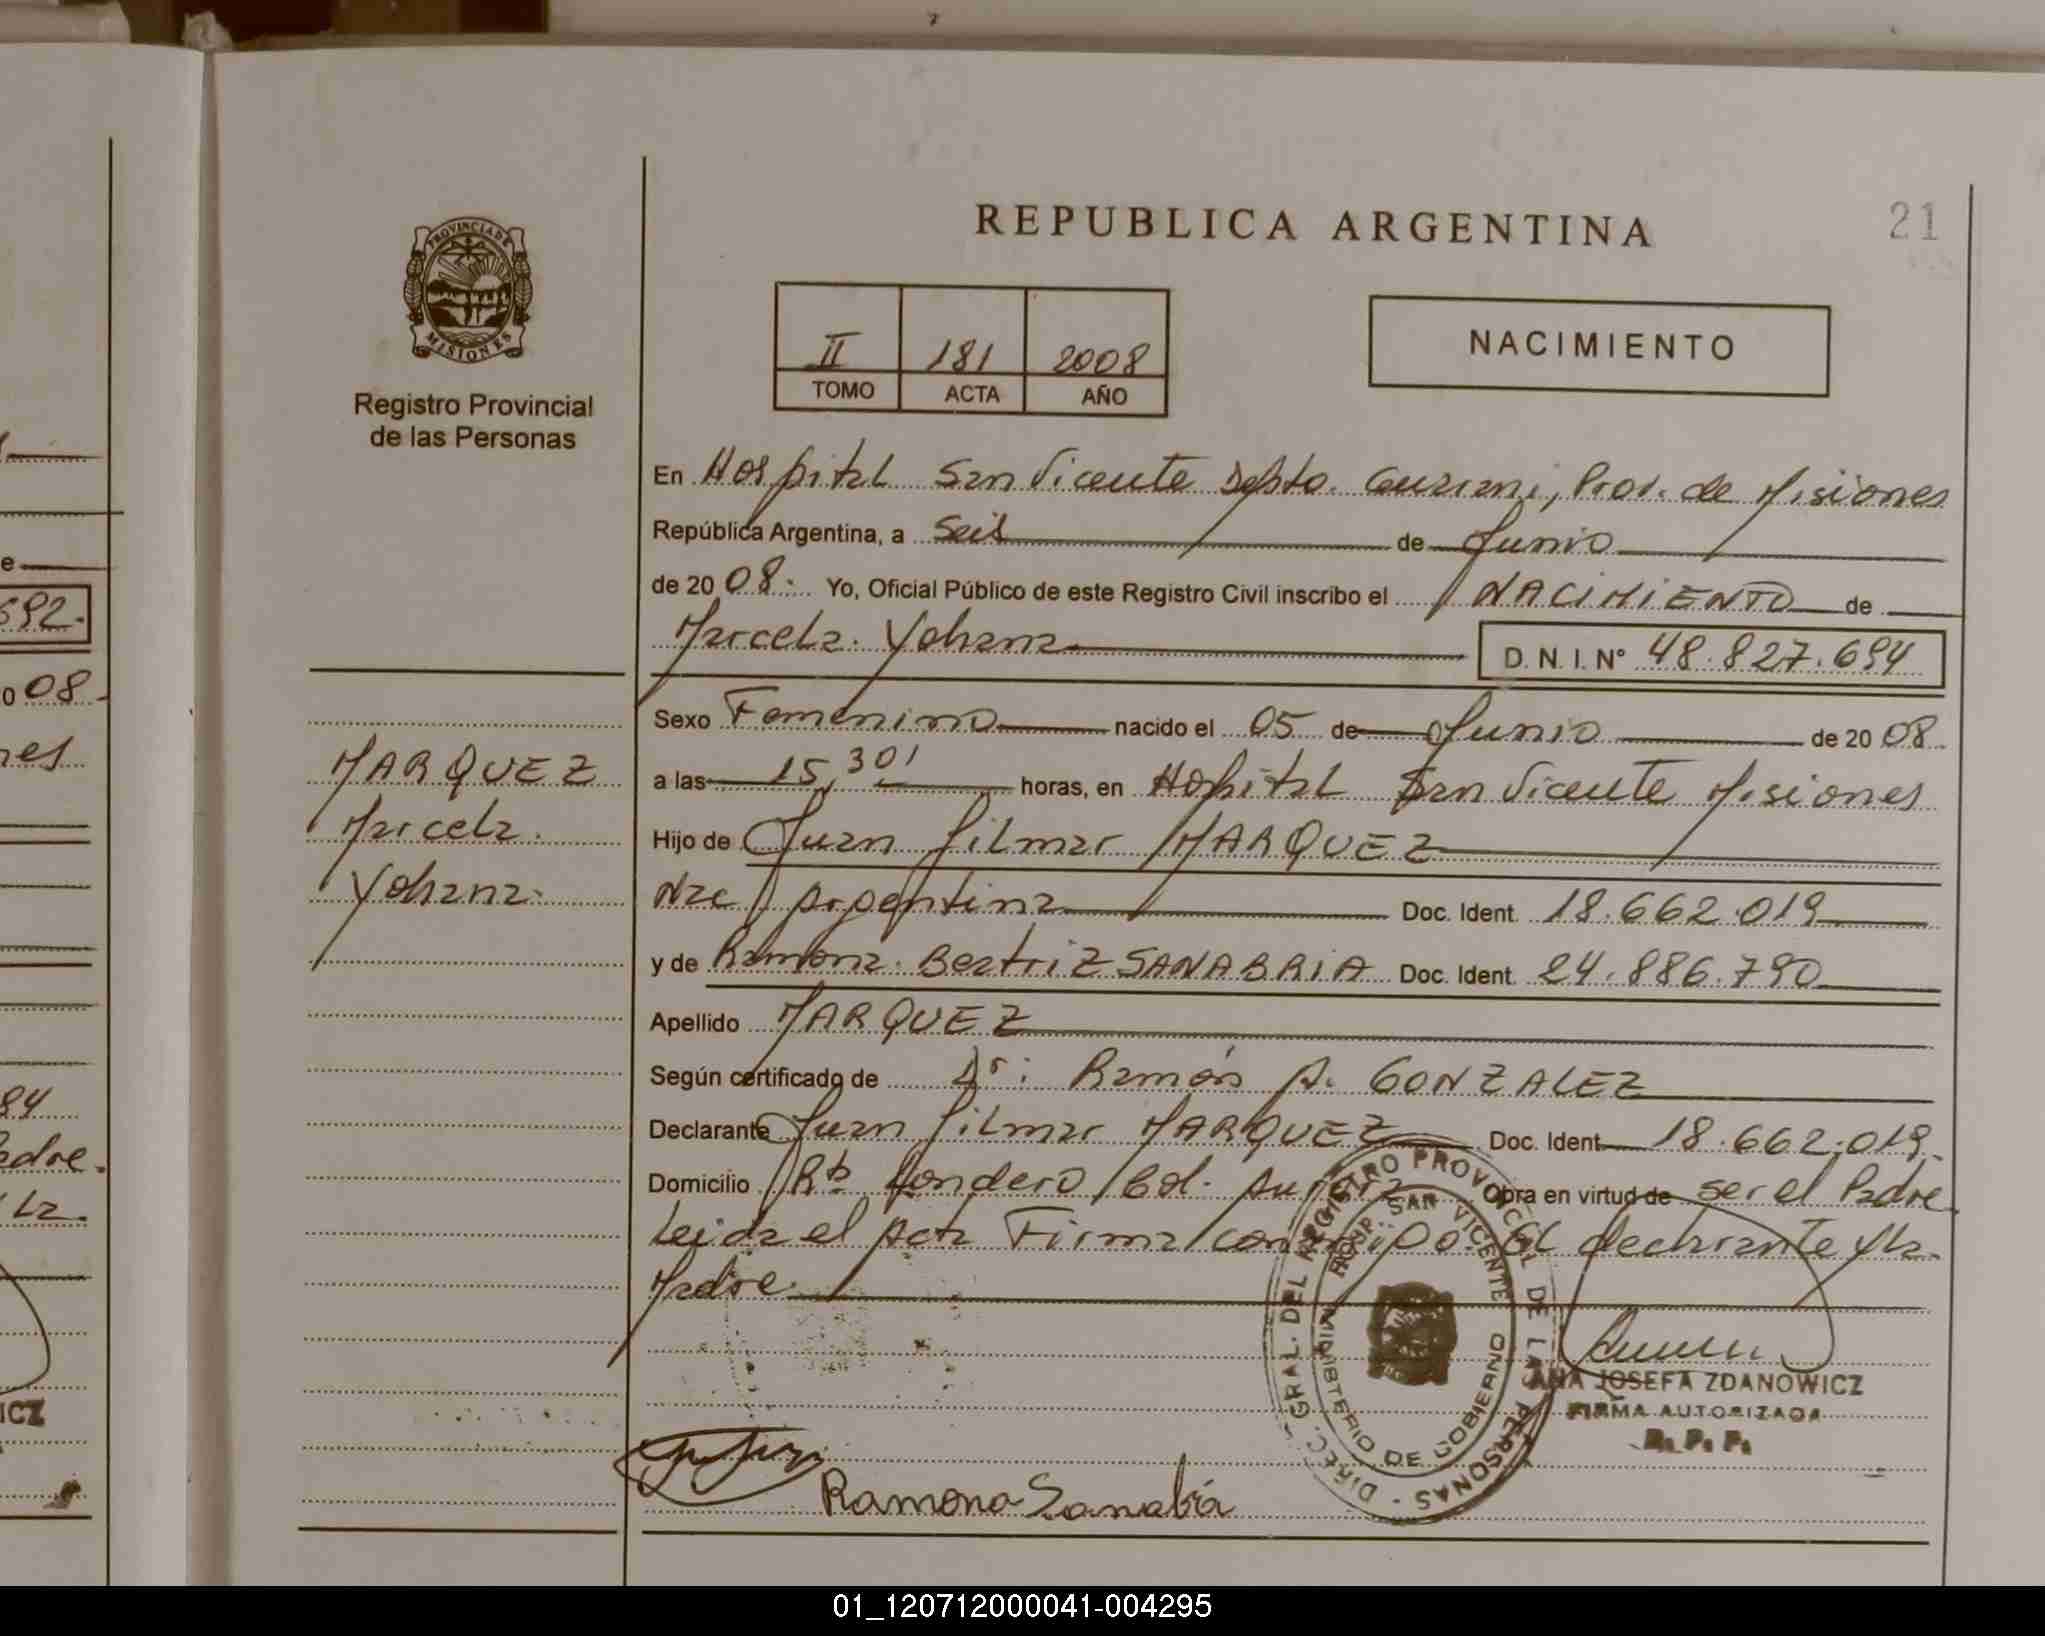 21
REPUBLICA ARGENTINA
PROVINCIA DE
MISIONES
Registro Provincial
de las Personas
II 181 2008
TOMO ACTA AÑO
NACIMIENTO
En Hospital San Vicente Depto. Guarani, Prov. de Misiones
República Argentina, a Seis de Junio
de 2008. Yo, Oficial Público de este Registro Civil inscribo el NACIMIENTO de
Marcela Yohana D. N. I. N° 48.827.694
Sexo Femenino nacido el 05 de Junio de 2008.
a las 15,30' horas, en Hospital San Vicente Misiones
Hijo de Juan Gilmar MARQUEZ
Nac Argentina Doc. Ident. 18.662.019
y de Ramona Beatriz SANABRIA Doc. Ident. 24.886.790
Apellido MARQUEZ
Según certificado de Dr: Ramón A. GONZALEZ
Declarante Juan Gilmar MARQUEZ Doc. Ident. 18.662.019
Domicilio Col. Obra en virtud de ser el Padre
Leida el Acta Firma el declarante y la
Madre
MARQUEZ
Marcela
Yohana
DIREC. GRAL. DEL REGISTRO PROVINCIAL DE LAS PERSONAS
SAN VICENTE
MINISTERIO DE GOBIERNO
ANA JOSEFA ZDANOWICZ
FIRMA AUTORIZADA
R. P. P.
Ramona Sanabria
692.
08.
nes
84
Padre.
La.
ICZ
01_120712000041-004295